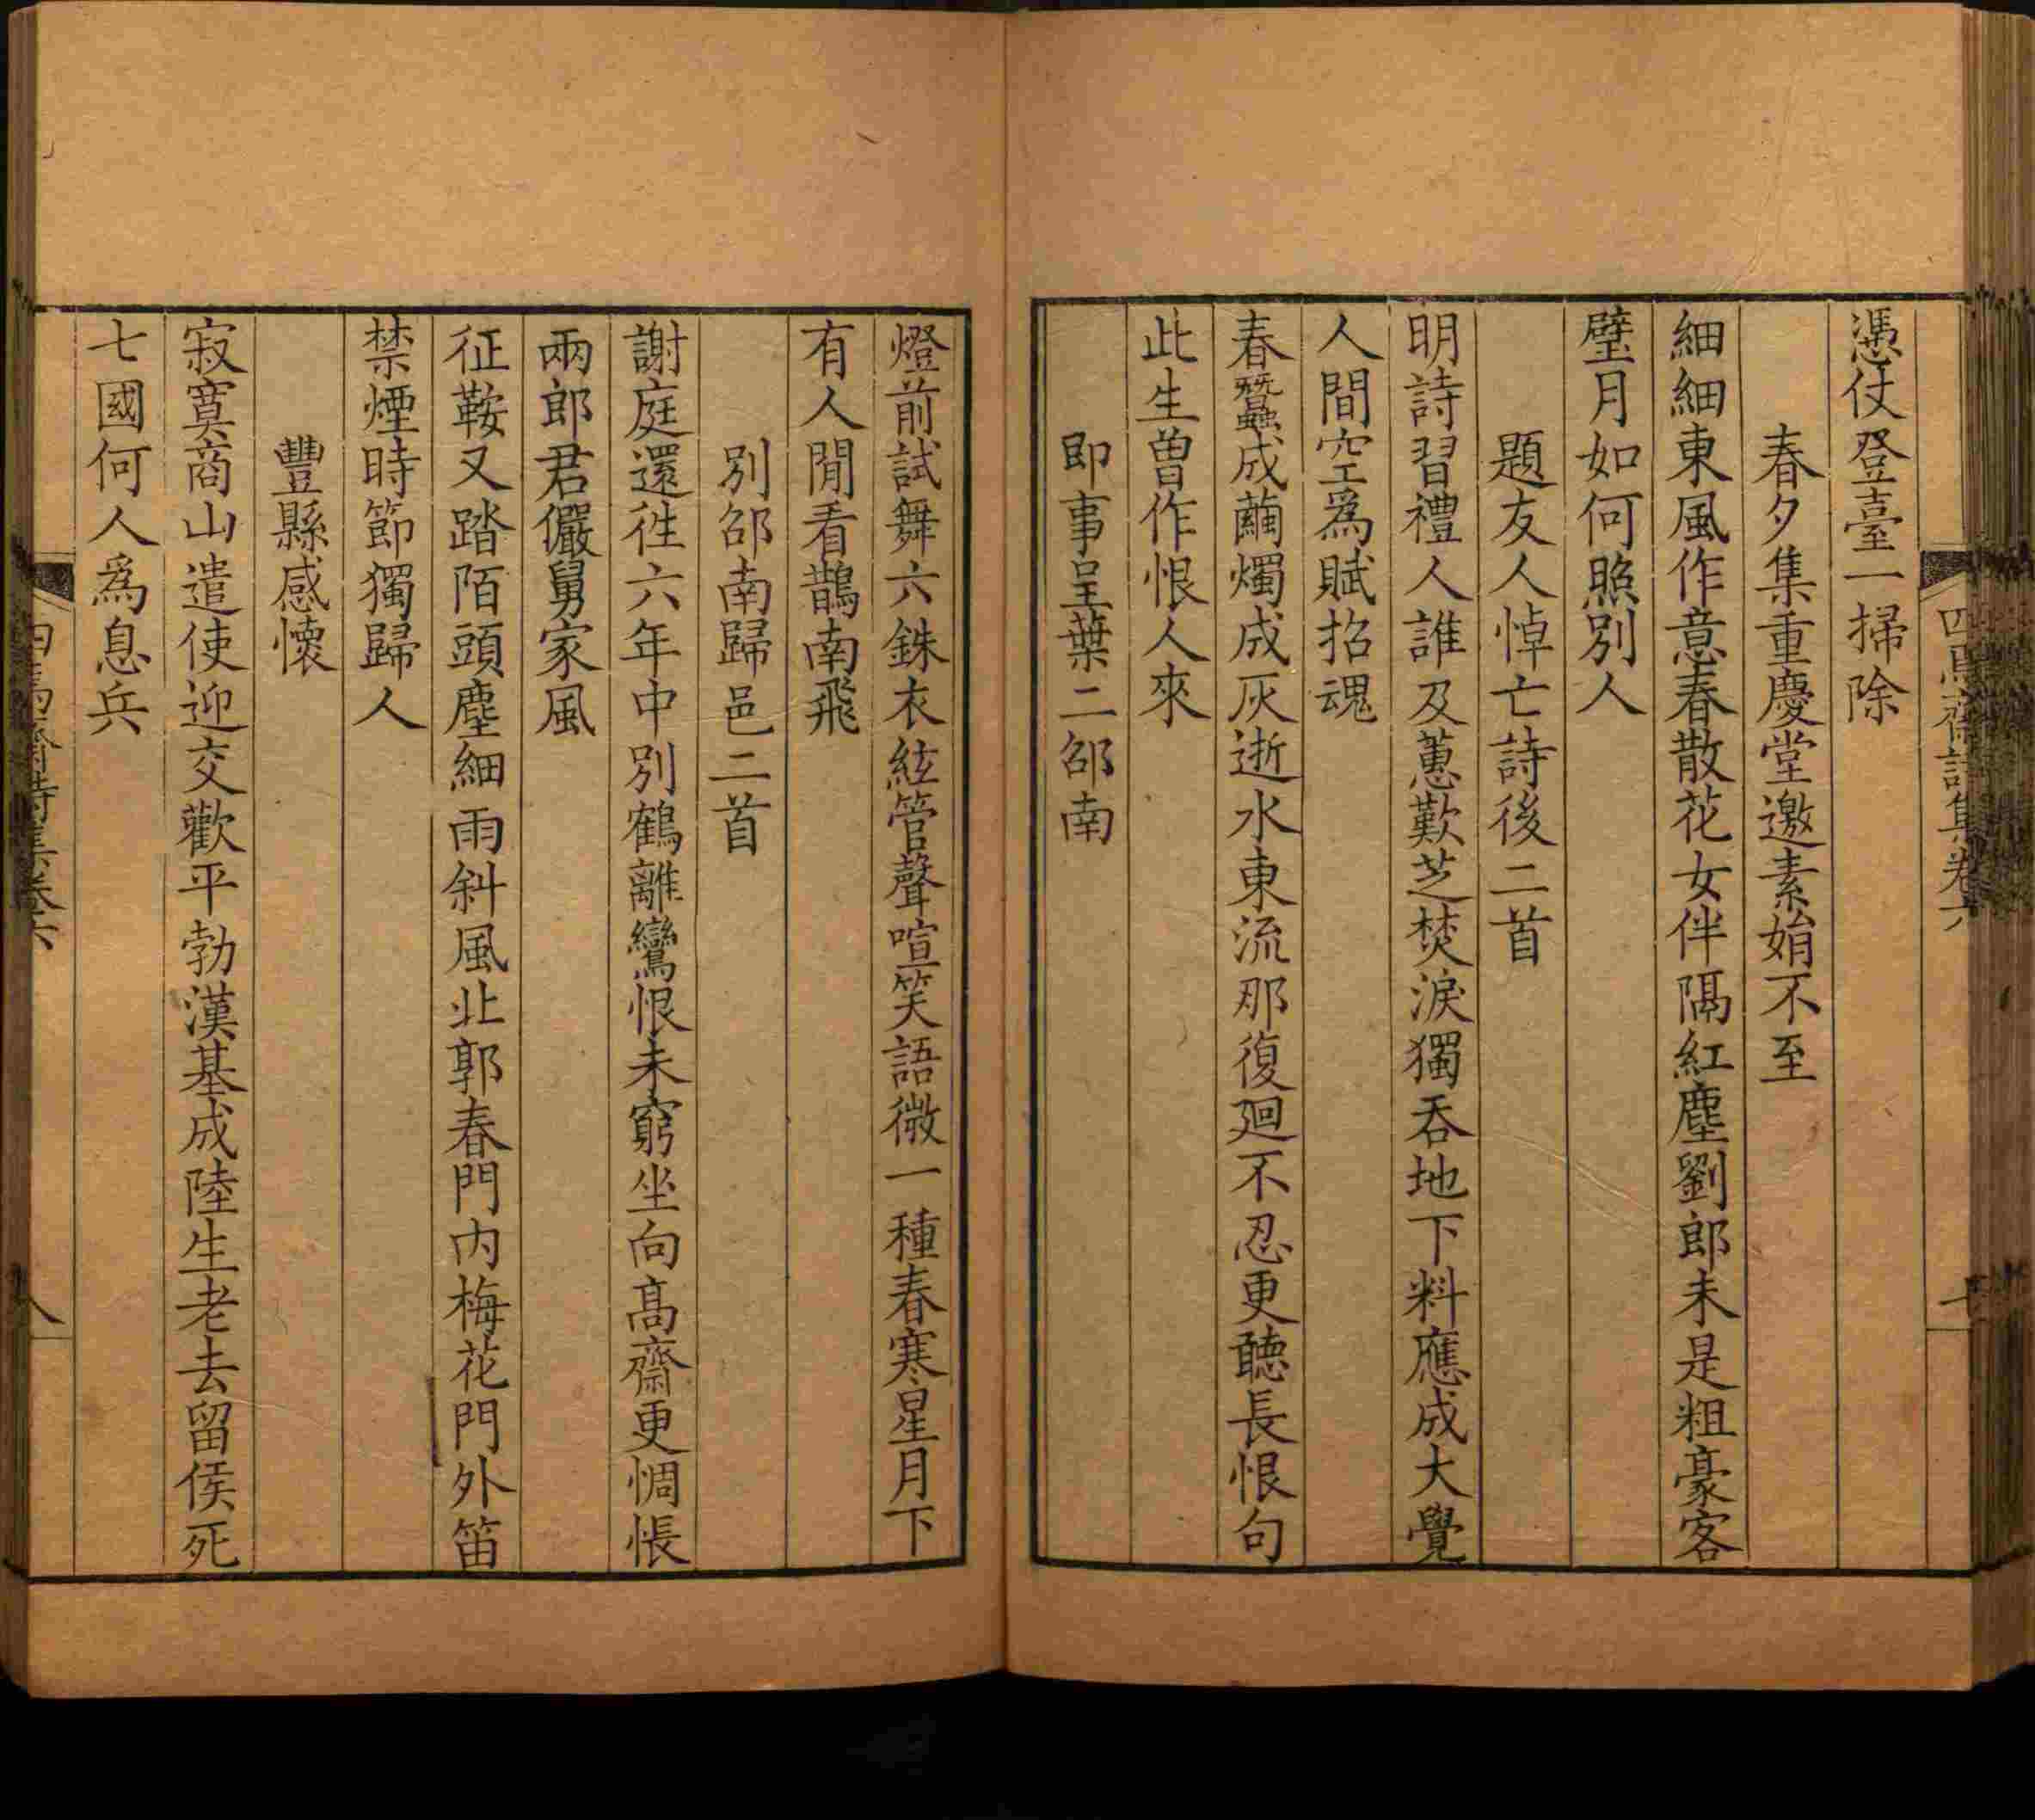 四焉齋詩集卷六
憑仗登臺一掃除
春夕集重慶堂邀素娟不至
細細東風作意春散花女伴隔紅塵劉郎未是粗豪客
璧月如何照別人
題友人悼亡詩後二首
明詩習禮人誰及蕙歎芝焚淚獨吞地下料應成大覺
人間空爲賦招魂
春蠶成繭燭成灰逝水東流那復迴不忍更聽長恨句
此生曾作恨人來
即事呈葉二邵南
燈前試舞六銖衣絃管聲喧笑語微一種春寒星月下
有人閒看鵲南飛
別邵南歸邑二首
謝庭還徃六年中別鶴離鸞恨未窮坐向高齋更惆悵
兩郎君儼舅家風
征鞍又踏陌頭塵細雨斜風北郭春門內梅花門外笛
禁煙時節獨歸人
豐縣感懷
寂寞商山遣使迎交歡平勃漢基成陸生老去留侯死
七國何人爲息兵
四焉齋詩集卷六
八